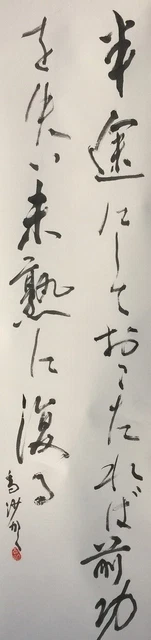 半途にしておこたれば前功
を失い未熟に復る